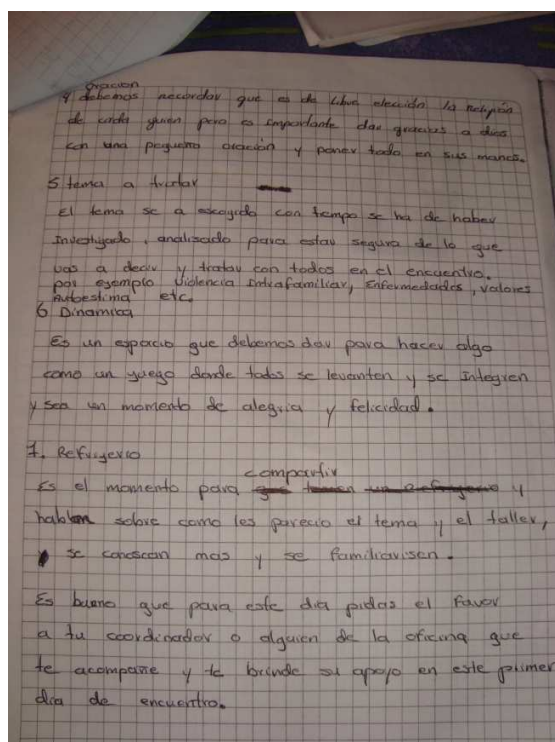 oración
y debemos recordar que es de libre elección la religión
de cada quien pero es importante dar gracias a dios
con una pequeña oración y poner todo en sus manos.
5 tema a tratar
El tema se a escogido con tiempo se ha de haber
Investigado, analisado para estar segura de lo que
vas a decir y tratar con todos en el encuentro.
por ejemplo Violencia Intrafamiliar, Enfermedades, valores
Autoestima etc.
6 Dinamica
Es un espacio que debemos dar para hacer algo
como un yuego donde todos se levanten y se Integren
y sea un momento de alegria y felicidad.
7. Refrigerio
compartir
Es el momento para y
hablen sobre como les parecio el tema y el taller,
se conoscan mas y se familiarisen.
Es bueno que para este dia pidas el Favor
a tu coordinador o alguien de la oficina que
te acompañe y te brinde su apoyo en este primer
dia de encuentro.